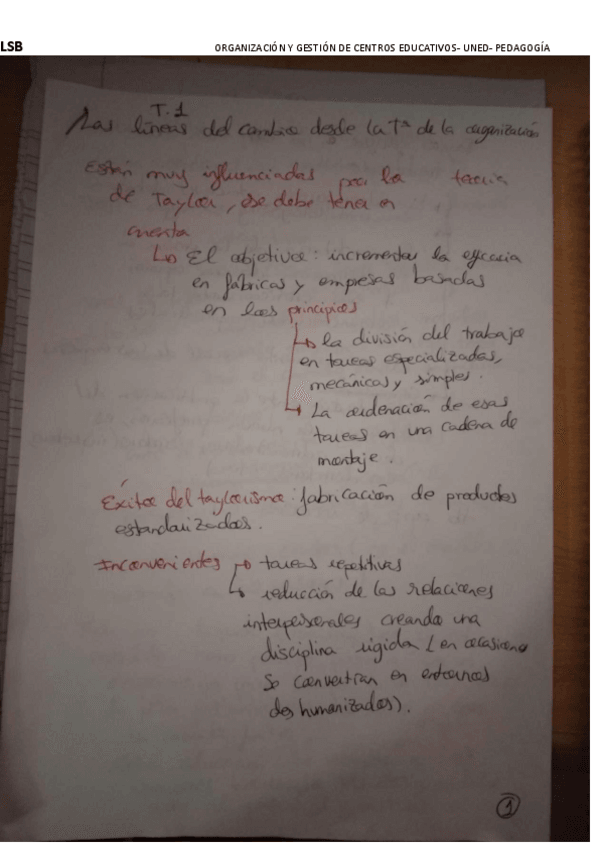 LSB
ORGANIZACIÓN Y GESTIÓN DE CENTROS EDUCATIVOS- UNED- PEDAGOGÍA
T.1
Las líneas del cambio desde la Tª de la organización
Están muy influenciadas por la teoría
de Taylor, se debe tener en
cuenta
El objetivo: incrementar la eficacia
en fábricas y empresas basadas
en los principios
la división del trabajo
en tareas especializadas,
mecánicas y simples.
La ordenación de esas
tareas en una cadena de
montaje.
Éxito del taylorismo: fabricación de productos
estandarizados.
Inconvenientes tareas repetitivas
reducción de las relaciones
interpersonales creando una
disciplina rígida (en ocasiones
se convertían en entornos
deshumanizados).
1